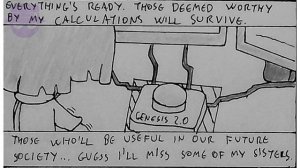 EVERYTHING'S READY. THOSE DEEMED WORTHY
BY MY CALCULATIONS WILL SURVIVE.
GENESIS 2.0
THOSE WHO'LL BE USEFUL IN OUR FUTURE
SOCIETY... GUESS I'LL MISS SOME OF MY SISTERS,